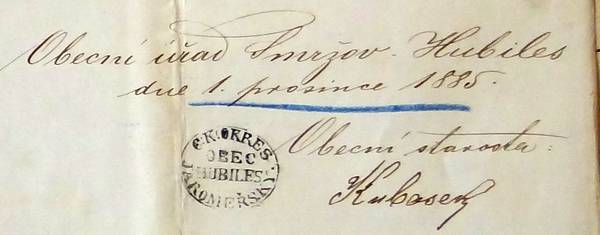 Obecní úřad Smržov-Hubiles
dne 1. prosince 1885.
Obecní starosta:
C.K. OKRES
OBEC
HUBILES
JAROMĚŘSKÝ